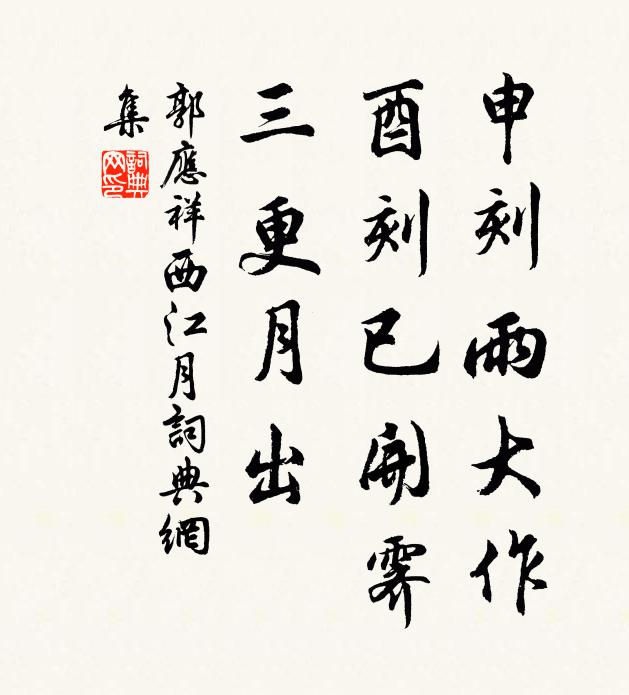 申刻雨大作
酉刻已開霽
三更月出
郭應祥西江月詞典網
集
詞典網印